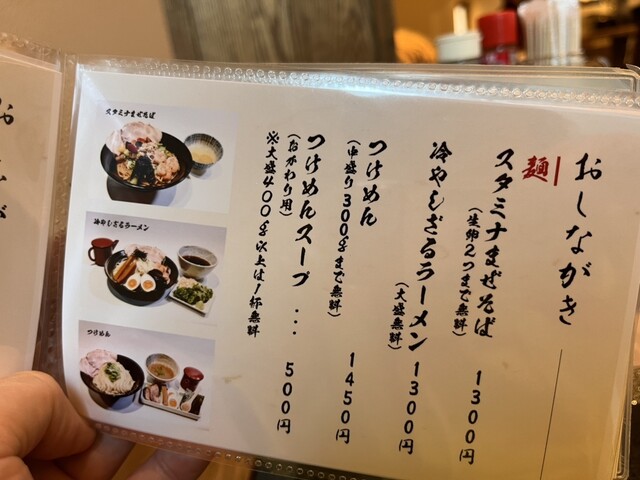 おしながき
麺
スタミナまぜそば 1300円
(生卵2つまで無料)
冷やしざるラーメン 1300円
(大盛無料)
つけめん 1450円
(中盛り300gまで無料)
つけめんスープ ... 500円
(おかわり用)
※大盛400g以上は1杯無料
スタミナまぜそば
冷やしざるラーメン
つけめん